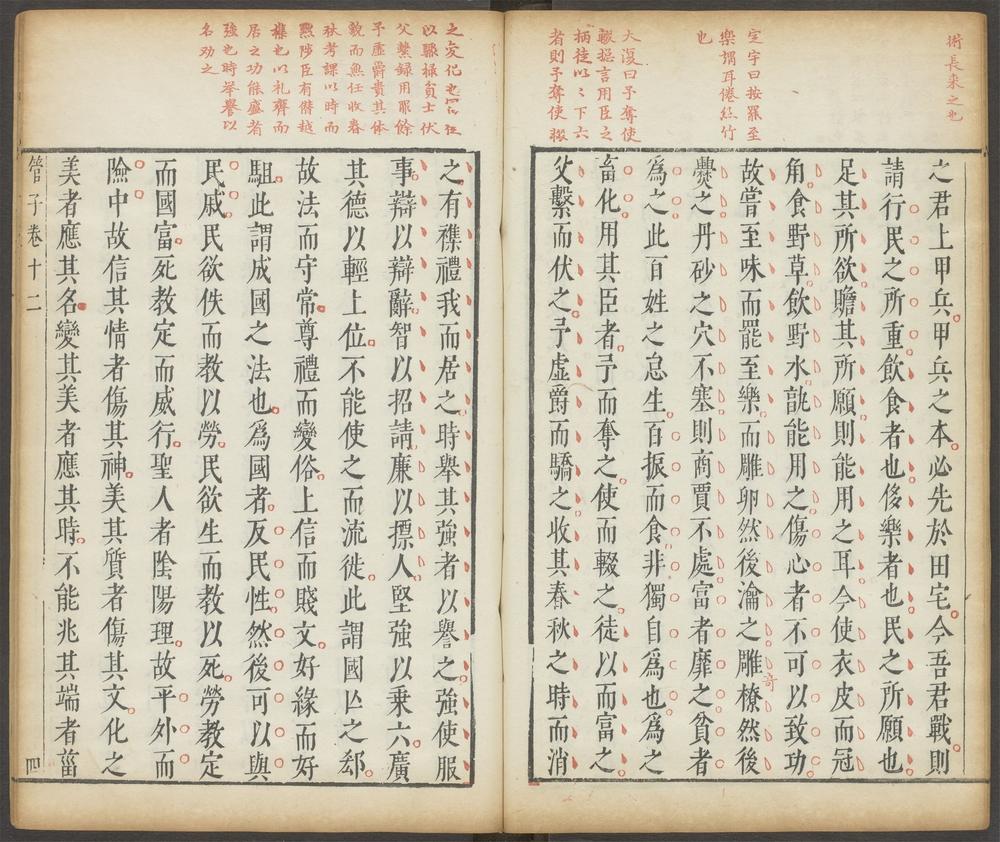 術長來之也
定宇曰按罷至
樂謂耳倦絲竹
也
大復曰予奪使
輟摠言用臣之
柄徒以〻下六
者則予奪使輟
之君上甲兵甲兵之本必先於田宅今吾君戰則
請行民之所重飲食者也侈樂者也民之所願也
足其所欲贍其所願則能用之耳今使衣皮而冠
角食野草飲野水孰能用之傷心者不可以致功
故嘗至味而罷至樂而雕卵然後瀹之雕橑然後
爨之丹砂之穴不塞則商賈不處富者靡之貧者
為之此百姓之怠生百振而食非獨自為也為之
畜化用其臣者予而奪之使而輟之徒以而富之
父繫而伏之予虛爵而驕之收其春秋之時而消
奇
之変化也
以驟操貧士伏
父繫録用罪餘
予虛爵貴其体
貌而無任收春
秋考課以時而
黜陟臣有僣越
襍也以礼齊而
居之功能盛者
強也時举譽以
名劝之
之有襍禮我而居之時舉其強者以譽之強使服
事辯以辯辭智以招請廉以摽人堅強以乘六廣
其德以輕上位不能使之而流徙此謂國亾之郄
故法而守常尊禮而變俗上信而賤文好緣而好
駔此謂成國之法也為國者反民性然後可以與
民戚民欲佚而教以勞民欲生而教以死勞教定
而國富死教定而威行聖人者陰陽理故平外而
險中故信其情者傷其神美其質者傷其文化之
美者應其名變其美者應其時不能兆其端者菑
管子卷十二
四